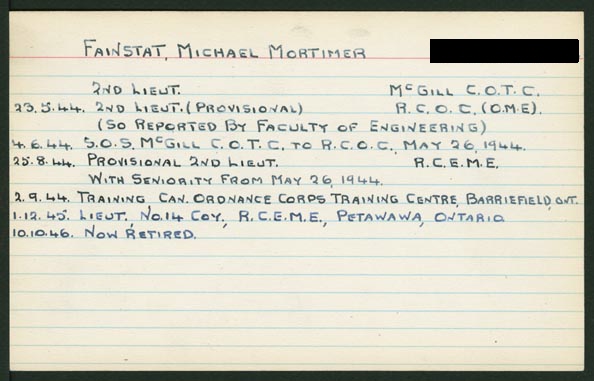 FAINSTAT, MICHAEL MORTIMER
2ND LIEUT. McGILL C.O.T.C.
23.5.44. 2ND LIEUT. (PROVISIONAL) R.C.O.C. (O.M.E).
(SO REPORTED BY FACULTY OF ENGINEERING)
4.6.44. S.O.S. McGILL C.O.T.C. TO R.C.O.C., MAY 26, 1944.
25.8.44. PROVISIONAL 2ND LIEUT. R.C.E.M.E.
WITH SENIORITY FROM MAY 26, 1944.
2.9.44. TRAINING, CAN. ORDNANCE CORPS TRAINING CENTRE, BARRIEFIELD, ONT.
1.12.45. LIEUT., NO.14 COY., R.C.E.M.E., PETAWAWA, ONTARIO
10.10.46. NOW RETIRED.